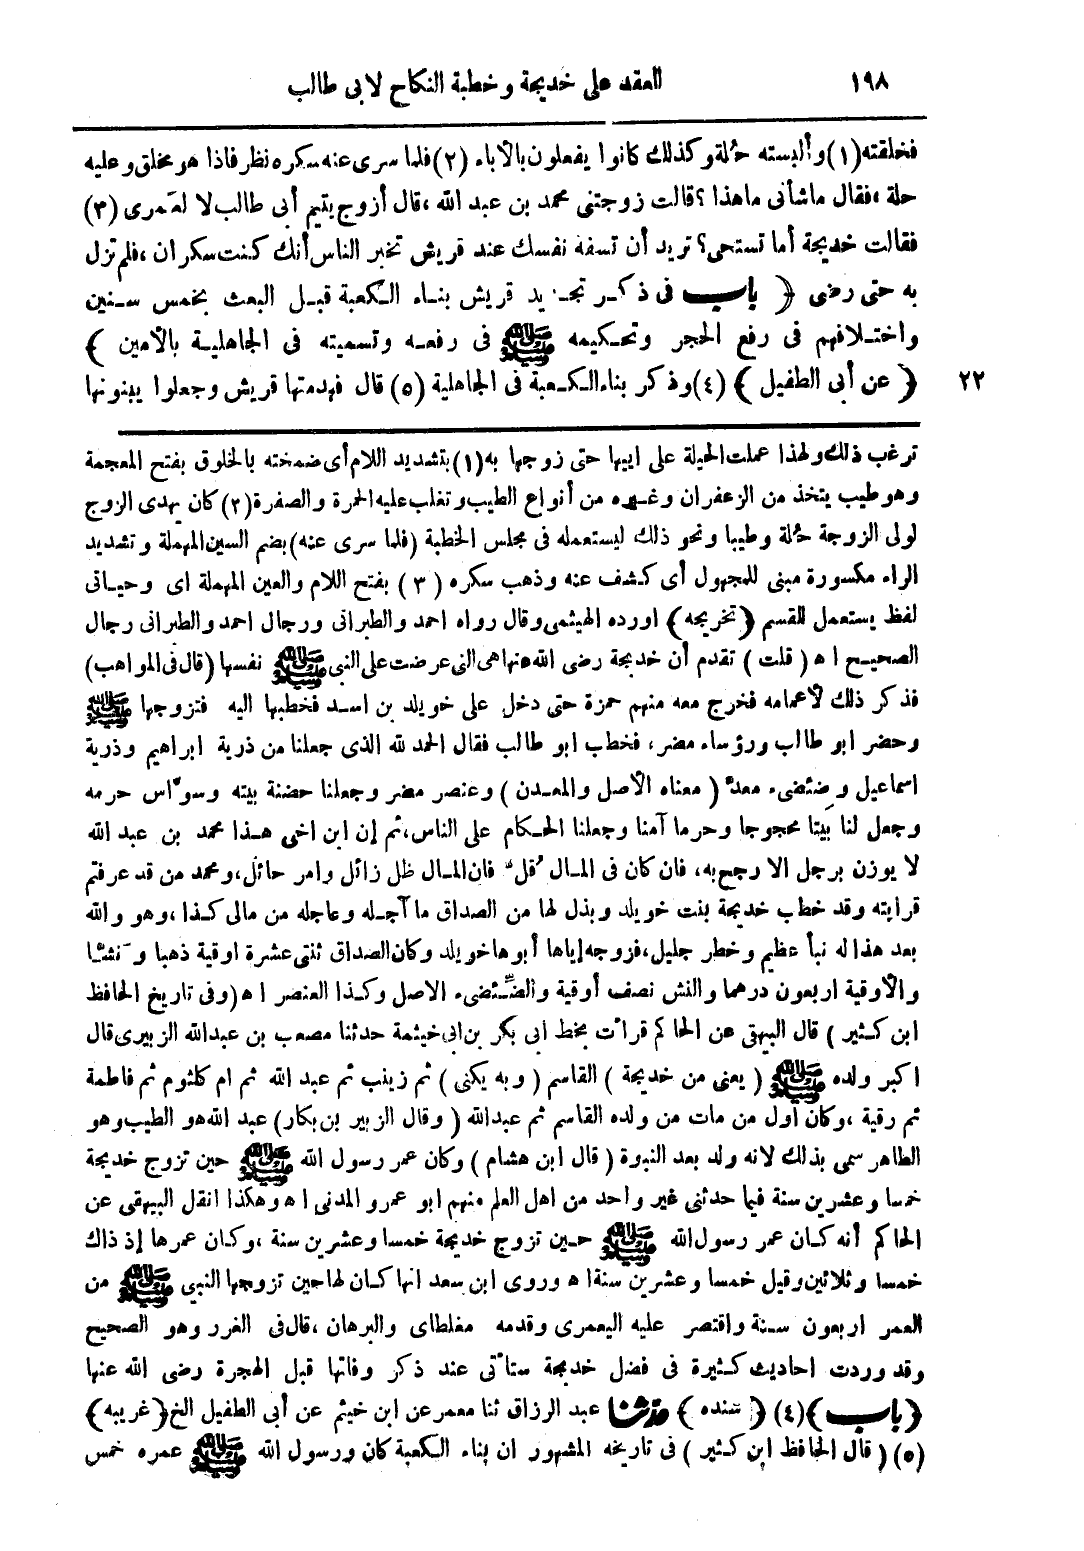 ١٩٨ العقد على خديجة وخطبة النكاح لابى طالب
فخلقته (١) وألبسته حُلة وكذلك كانوا يفعلون بالآباء (٢) فلما سرى عنه سكره نظر فاذا هو مخلق وعليه
حلة ، فقال ماشأنى ماهذا ؟ قالت زوجتنى محمد بن عبد الله ، قال أزوج يتيم أبى طالب لا لعَمرى (٣)
فقالت خديجة أما تستحى ؟ تريد أن تسفه نفسك عند قريش تخبر الناس أنك كنت سكران ، فلم تزل
به حتى رضى ﴿ باب فى ذكر تجديد قريش بناء الكعبة قبل البعث بخمس سنين
واختلافهم فى رفع الحجر وتحكيمه ﷺ فى رفعه وتسميته فى الجاهلية بالأمين ﴾
٢٢ ﴿ عن أبى الطفيل ﴾ (٤) وذكر بناء الكعبة فى الجاهلية (٥) قال فهدمتها قريش وجعلوا يبنونها
ترغب ذلك ولهذا عملت الحيلة على ابيها حتى زوجها به (١) بتشديد اللام أى ضمخته بالخلوق بفتح المعجمة
وهو طيب يتخذ من الزعفران وغيره من أنواع الطيب وتغلب عليه الحمرة والصفرة (٢) كان يهدى الزوج
لولى الزوجة حُلة وطيبا ونحو ذلك ليستعمله فى مجلس الخطبة (فلما سرى عنه) بضم السين المهملة وتشديد
الراء مكسورة مبنى للمجهول أى كشف عنه وذهب سكره (٣) بفتح اللام والعين المهملة اى وحياتى
لفظ يستعمل للقسم ﴿تخريجه﴾ اورده الهيثمى وقال رواه احمد والطبرانى ورجال احمد والطبرانى رجال
الصحيح اه (قلت) تقدم أن خديجة رضى الله عنها هى التى عرضت على النبى ﷺ نفسها (قال فى المواهب)
فذكر ذلك لأعمامه فخرج معه منهم حمزة حتى دخل على خويلد بن اسد فخطبها اليه فتزوجها ﷺ
وحضر ابو طالب ورؤساء مضر، فخطب ابو طالب فقال الحمد لله الذى جعلنا من ذرية ابراهيم وذرية
اسماعيل وضئضىء معدّ (معناه الأصل والمعدن) وعنصر مضر وجعلنا حضنة بيته وسوّاس حرمه
وجعل لنا بيتا محجوجا وحرما آمنا وجعلنا الحكام على الناس، ثم إن ابن اخى هذا محمد بن عبد الله
لا يوزن برجل الا رجح به، فان كان فى المال قُلّ فان المال ظل زائل وامر حائل، ومحمد من قد عرفتم
قرابته وقد خطب خديجة بنت خويلد وبذل لها من الصداق ما آجله وعاجله من مالى كذا ، وهو والله
بعد هذا له نبأ عظيم وخطر جليل، فزوجه إياها أبوها خويلد وكان الصداق ثنتى عشرة اوقية ذهبا ونَشّا
والأوقية اربعون درهما والنش نصف أوقية والضّئضىء الاصل وكذا العنصر اه (وفى تاريخ الحافظ
ابن كثير) قال البيهقى عن الحاكم قرأت بخط ابى بكر بن ابى خيثمة حدثنا مصعب بن عبدالله الزبيرى قال
اكبر ولده ﷺ (يعنى من خديجة) القاسم (وبه يكنى) ثم زينب ثم عبد الله ثم ام كلثوم ثم فاطمة
ثم رقية ، وكان اول من مات من ولده القاسم ثم عبدالله (وقال الزبير بن بكار) عبد الله هو الطيب وهو
الطاهر سمى بذلك لانه ولد بعد النبوة (قال ابن هشام) وكان عمر رسول الله ﷺ حين تزوج خديجة
خمسا وعشرين سنة فيما حدثنى غير واحد من اهل العلم منهم ابو عمرو المدنى اه وهكذا انقل البيهقى عن
الحاكم أنه كان عمر رسول الله ﷺ حين تزوج خديجة خمسا وعشرين سنة ، وكان عمرها إذ ذاك
خمسا وثلاثين وقيل خمسا وعشرين سنة اه وروى ابن سعد انها كان لها حين تزوجها النبي ﷺ من
العمر اربعون سنة واقتصر عليه اليعمرى وقدمه مغلطاى والبرهان ، قال فى الغرر وهو الصحيح
وقد وردت احاديث كثيرة فى فضل خديجة ستأتى عند ذكر وفاتها قبل الهجرة رضى الله عنها
﴿باب﴾ (٤) ﴿سنده﴾ حدثنا عبد الرزاق ثنا معمر عن ابن خيثم عن أبى الطفيل الخ ﴿غريبه﴾
(٥) (قال الحافظ ابن كثير) فى تاريخه المشهور ان بناء الكعبة كان ورسول الله ﷺ عمره خمس